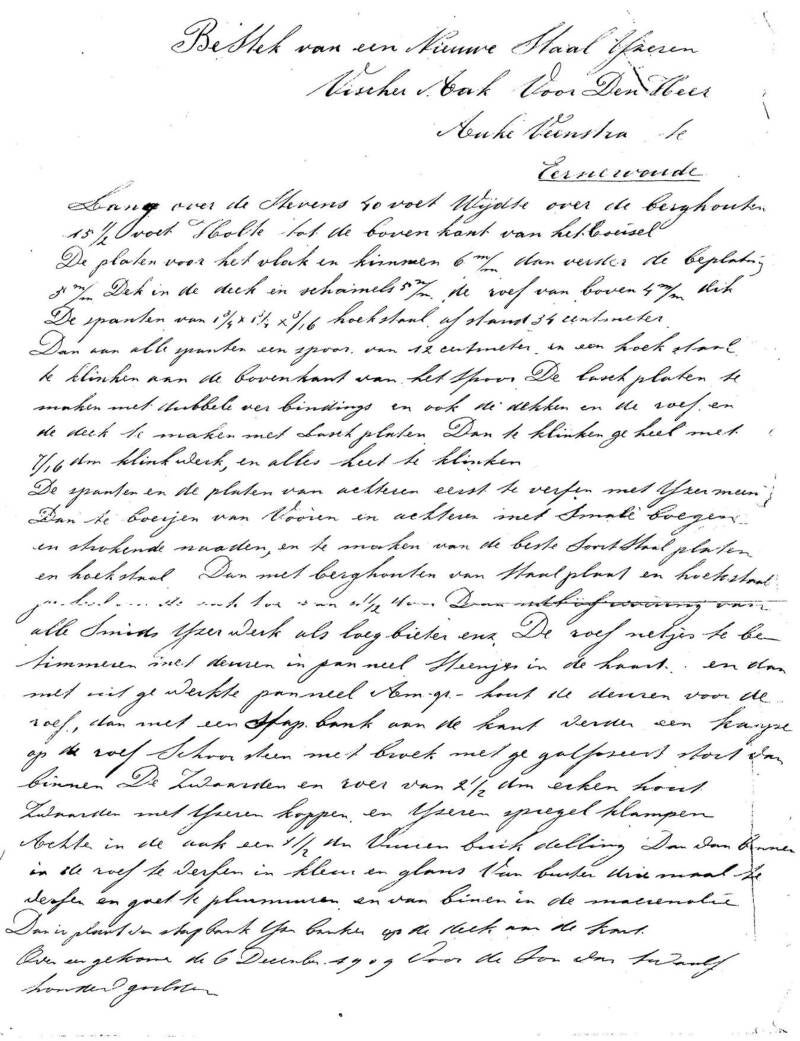 Bestek van een Nieuwe Staal Yzeren
Visscher Aak Voor Den Heer
Auke Veenstra te
Eernewoude
Lang over de Stevens 40 voet Wijdte over de berghouten
15 1/2 voet Holte tot de boven kant van het boeisel
De platen voor het vlak en kimmen 6 m/m dan verder de beplating
5 m/m Dek in de deck en schamels 5 m/m de roef van boven 4 m/m dik
De spanten van 1 3/4 x 1 3/4 x 3/16 hoekstaal afstand 34 centmeter
Dan aan alle spanten een spoor van 12 centmeter en een hoek staal
te klinken aan de bovenkant van het spoor De lasch platen te
maken met dubbele verbindings en ook de dekken en de roef en
de deck te maken met Lasch platen Dan te klinken geheel met
7/16 dm klinkwerk, en alles heet te klinken
De spanten en de platen van achteren eerst te verfen met Yzermeni
Dan te boeijen van Vooren en achteren met Smale boegen
en strokende naaden, en te maken van de beste Soort Staal platen
en hoekstaal Dan met berghouten van Staal plaat en hoekstaal
alle Smids Yzer werk als loegbieter enz. De roef netjes te be
timmeren met deuren in panneel Steenjes in de haart en dan
met uit ge werkte panneel Am-gr- hout de deuren voor de
roef, dan met een Stap bank aan de kant verder een kapje
op de roef Schoorsteen met broek met ge galfoseert stort van
binnen De Zwaarden en roer van 2 1/2 dm eiken hout
Zwaarden met Yzeren koppen en Yzeren spiegel klampen
Achte in de aak een 1 1/2 dm Vuuren buik delling Dan van binnen
in de roef te verfen in kleur en glans Van buiten drie maal te
verfen en goet te plumuuren en van binen in de
Dan in plaat van stap bank Yzer banken op de deck aan de kant
Over een gekomen de 6 December 1909 Voor de Som van twaalf
honderd gulden